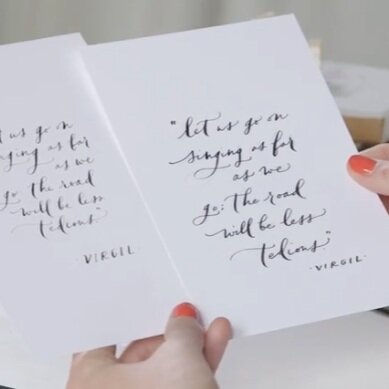 et us go on
nging as far
as we
go: the road
will be less
tedious."
·VIRGIL·
"let us go on
singing as far
as we
go: the road
will be less
tedious."
·VIRGIL·